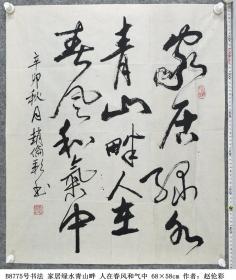 家居绿水
青山畔人在
春风和氣中
辛卯秋月赵倫彩书
B8775号书法 家居绿水青山畔 人在春风和气中 68×58cm 作者：赵伦彩